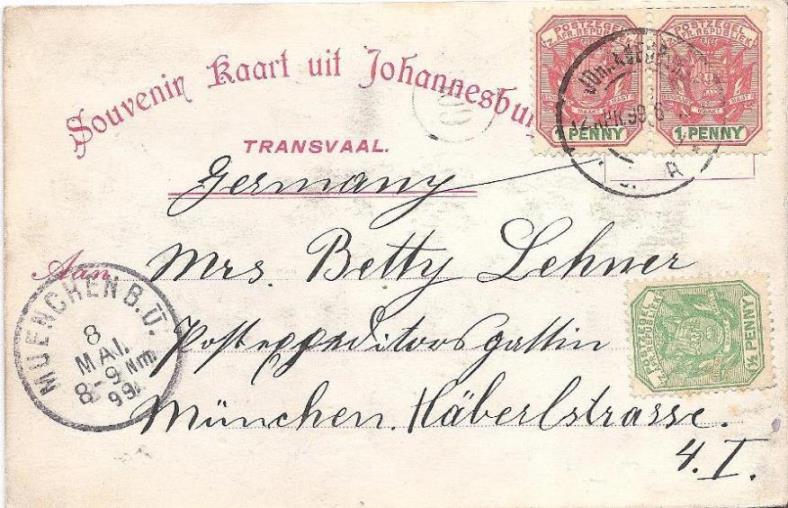 Souvenir Kaart uit Johannesburg
TRANSVAAL.
Germany
Aan
Mrs. Betty Lehner
Postexpeditorsgattin
München. Häberlstrasse.
4. I.
POSTZEGEL
Z. AFR. REPUBLIEK
1 PENNY
POSTZEGEL
Z. AFR. REPUBLIEK
1 PENNY
APR. 99
POSTZEGEL
Z. AFR. REPUBLIEK
½ PENNY
MUENCHEN B.Ü.
8
MAI.
8-9 Nm
99.